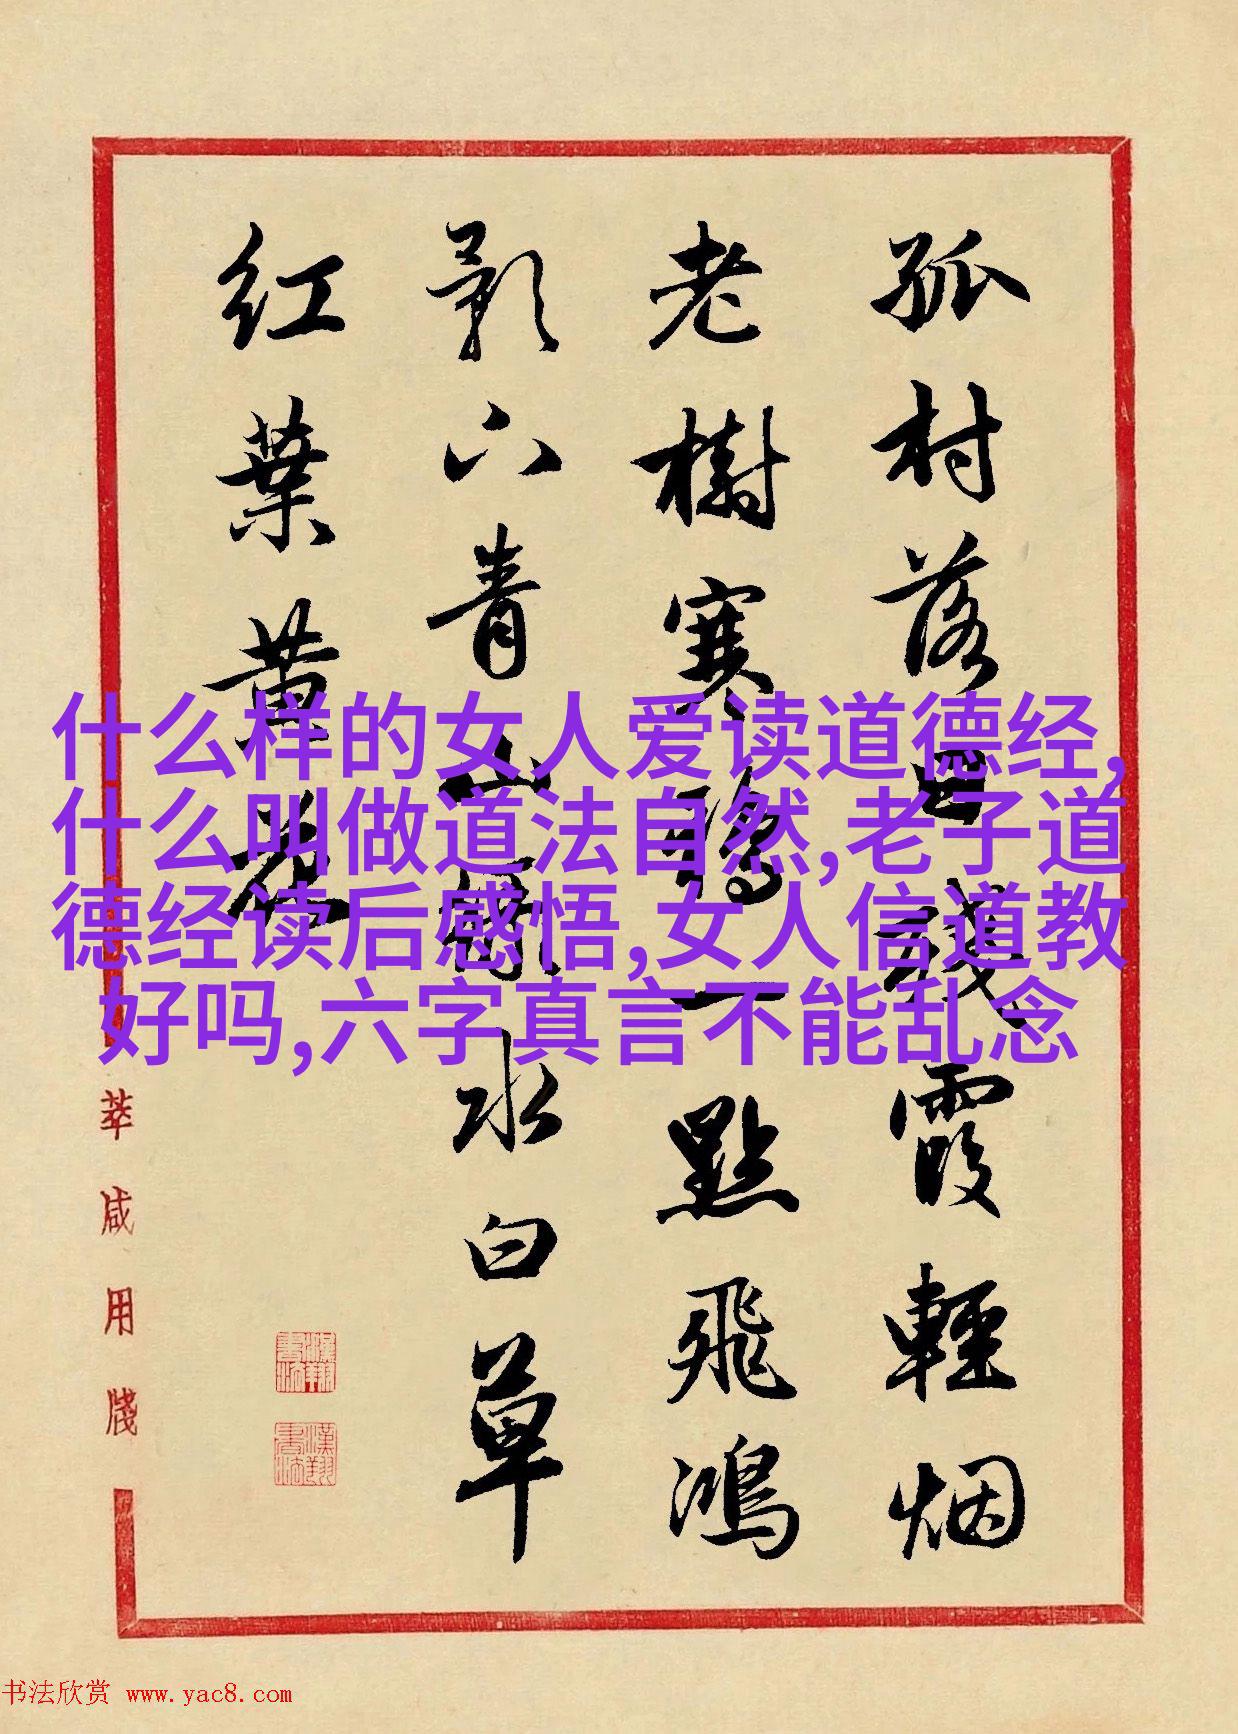 孤村落日残霞輕烟
老樹寒鴉一點飛鴻
影下青山緑水白草
红葉黄花
什么样的女人爱读道德经,
什么叫做道法自然,老子道
德经读后感悟,女人信道教
好吗,六字真言不能乱念
萃咸用牋
书法欣赏 www.yac8.com